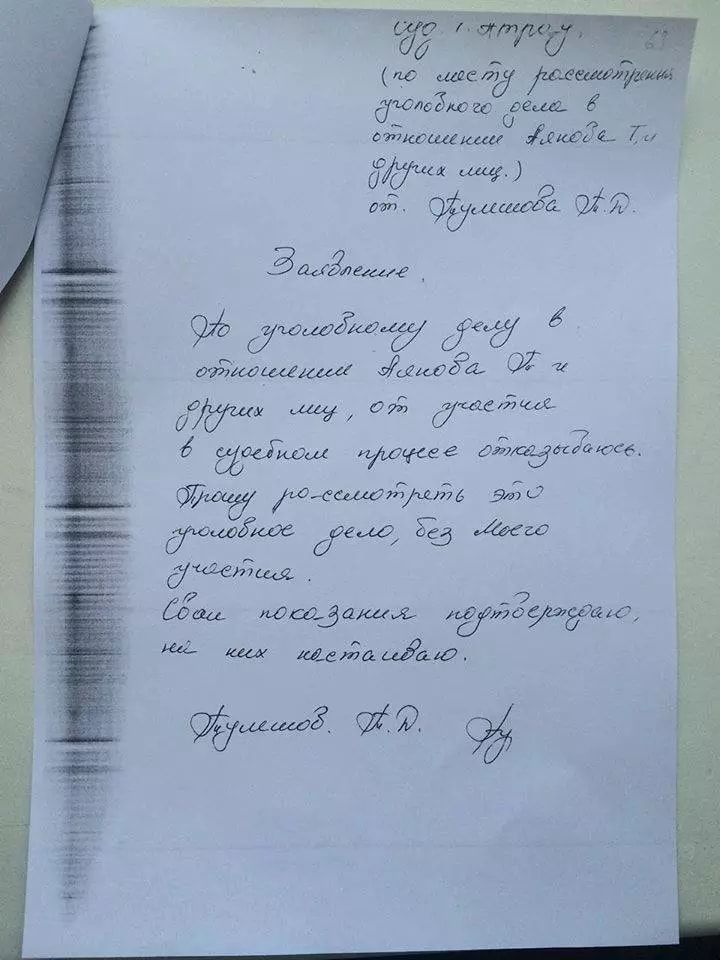 суд г. Атрау,
69
(по месту рассмотрения
уголовного дела в
отношении Аянова Т, и
других лиц.)
от. Тулешова Т. Д.
Заявление.
По уголовному делу в
отношении Аянова Т. и
других лиц, от участия
в судебном процессе отказываюсь.
Прошу ра-ссмотреть это
уголовное дело, без моего
участия.
Свои показания подтверждаю,
на них настаиваю.
Тулешов. Т. Д.